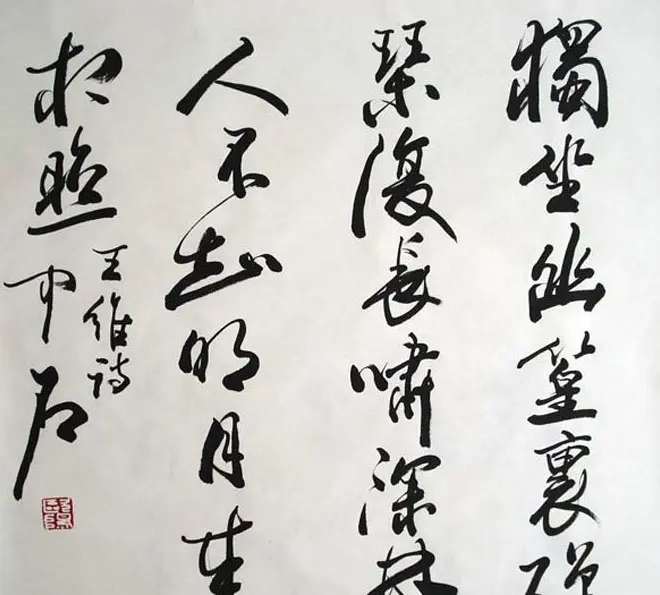 獨坐幽篁裏彈
琴復長嘯深林
人不知明月来
相照
王維詩
中石